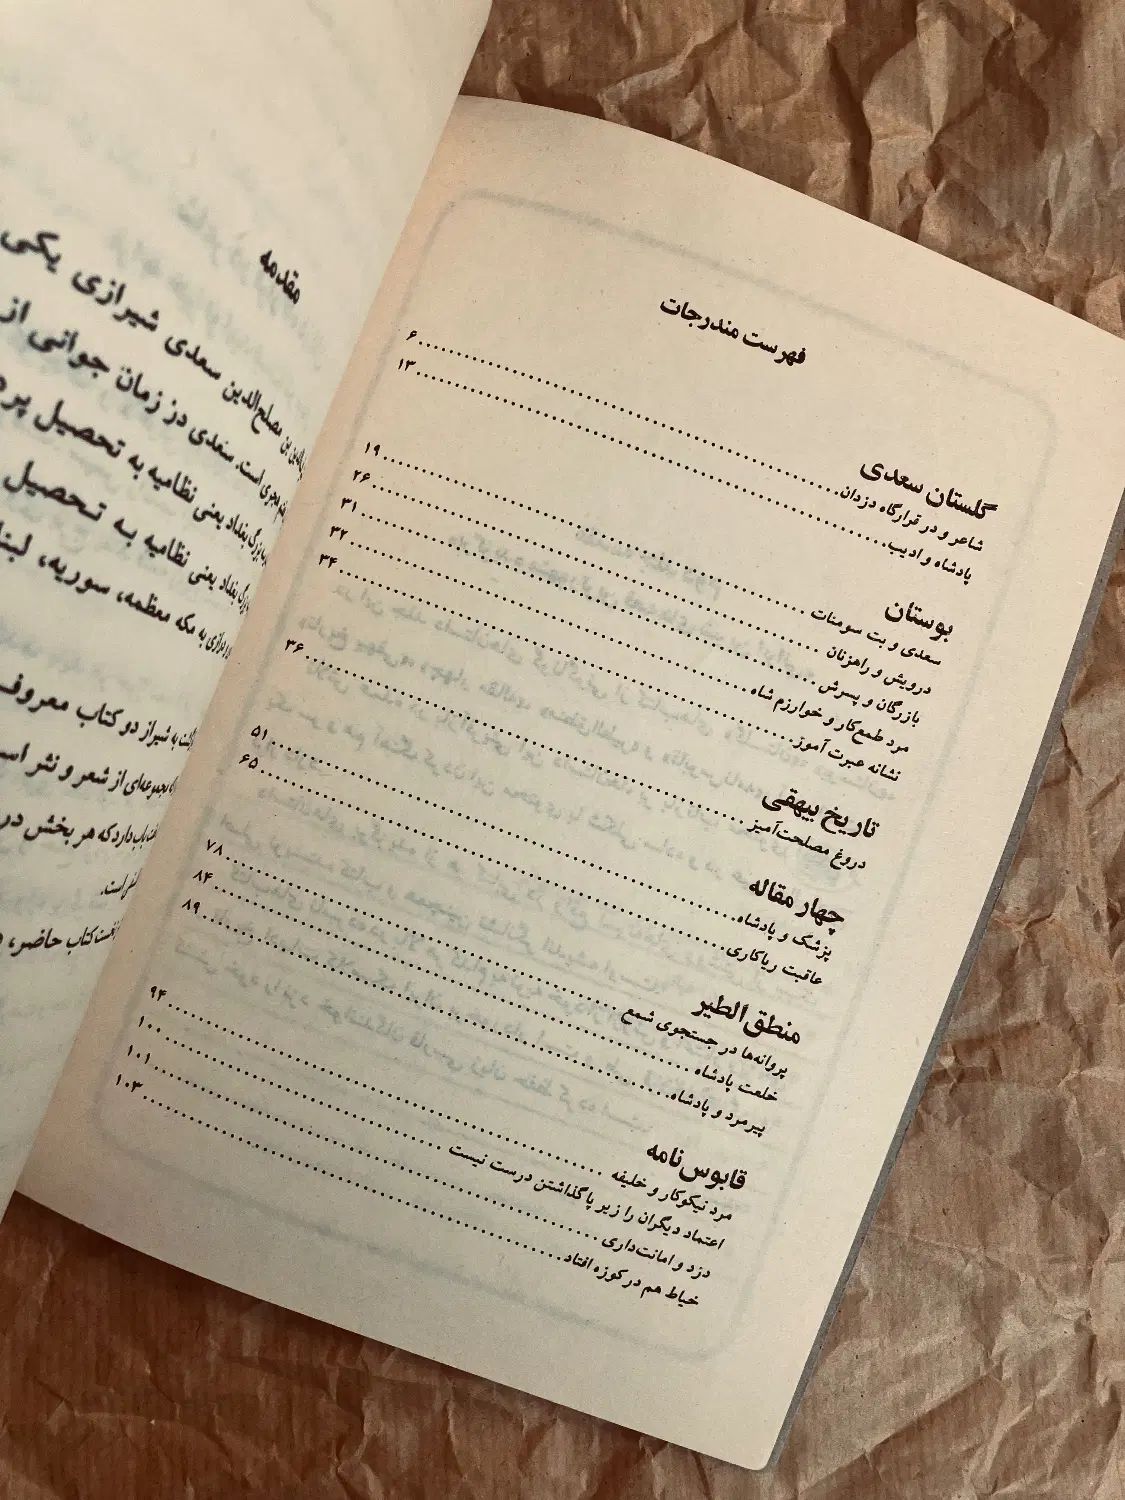 فهرست مندرجات
گلستان سعدی
شاعر و در قرارگاه دزدان ۶
پادشاه و ادیب ۱۳
بوستان
سعدی و بت سومنات ۱۹
درویش و راهزنان ۲۶
بازرگان و پسرش ۳۱
مرد طمع‌کار و خوارزم شاه ۳۲
نشانه عبرت آموز ۳۴
تاریخ بیهقی
دروغ مصلحت‌آمیز ۳۶
چهار مقاله
پزشک و پادشاه ۵۱
عاقبت ریاکاری ۶۵
منطق الطیر
پروانه‌ها در جستجوی شمع ۷۸
خلعت پادشاه ۸۴
پیرمرد و پادشاه ۸۹
قابوس‌نامه
مرد نیکوکار و خلیفه ۹۴
اعتماد دیگران را زیر پا گذاشتن درست نیست ۱۰۰
دزد و امانت‌داری ۱۰۱
خیاط هم در کوزه افتاد ۱۰۳
مقدمه
بن مصلح‌الدین سعدی شیرازی یکی
هجری است. سعدی در زمان جوانی از
بزرگ بغداد یعنی نظامیه به تحصیل
بغداد یعنی نظامیه به تحصیل
به مکه معظمه، سوریه،
به شیراز دو کتاب معروف
مجموعه‌ای از شعر و نثر
باب دارد که هر بخش در
است.
کتاب حاضر،